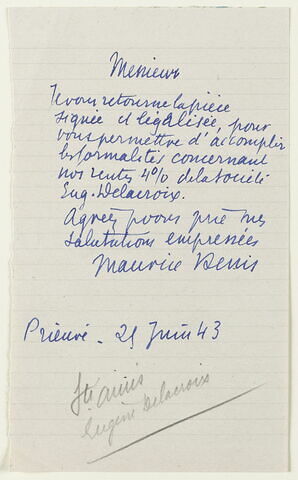 Messieurs
Je vous retourne la pièce
signée et légalisée, pour
vous permettre d'accomplir
les formalités concernant
nos rentes 4% de la Société
Eug. Delacroix.
Agréez, je vous prie, mes
salutations empressées
Maurice Denis
Prieuré - 25 Juin 43
Sté amis
Eugène Delacroix